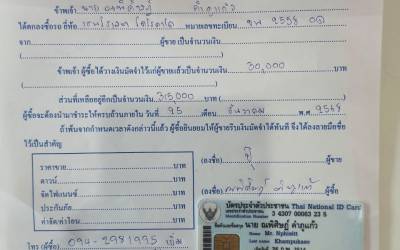 ข้าพเจ้า นาย ณพิศิษฏ์ คำภูแก้ว
ได้ตกลงซื้อรถ ยี่ห้อ หมายเลขทะเบียน ขห 2598 
จาก ผู้ขาย เป็นจำนวนเงิน บาท
ข้าพเจ้า ผู้ซื้อได้วางเงินมัดจำไว้แก่ผู้ขายแล้วเป็นจำนวนเงิน 30,000 บาท
ส่วนที่เหลืออยู่อีกเป็นจำนวนเงิน 315,000 บาท
ผู้ซื้อจะต้องนำมาชำระให้ครบถ้วนภายใน วันที่ 25 เดือน ธันวาคม พ.ศ. 2568
ถ้าพ้นจากกำหนดเวลาดังกล่าวแล้ว ผู้ซื้อยินยอมให้ผู้ขายริบเงินมัดจำได้ทันที จึงได้ลงลายมือชื่อ
ไว้เป็นสำคัญ
ราคาขาย บาท
ดาวน์ บาท
จัดไฟแนนซ์ บาท
ประกันภัย บาท
ค่าจัด/ค่าโอน บาท
โทร (ผู้ซื้อ) 094-2981995
(ลงชื่อ) ผู้ขาย
(ลงชื่อ) ณพิศิษฏ์ คำภูแก้ว
บัตรประจำตัวประชาชน Thai National ID Card
3 4307 00063 23 5
นาย ณพิศิษฏ์ คำภูแก้ว
Name Mr. Nphisitt
Last name Khampukaeo